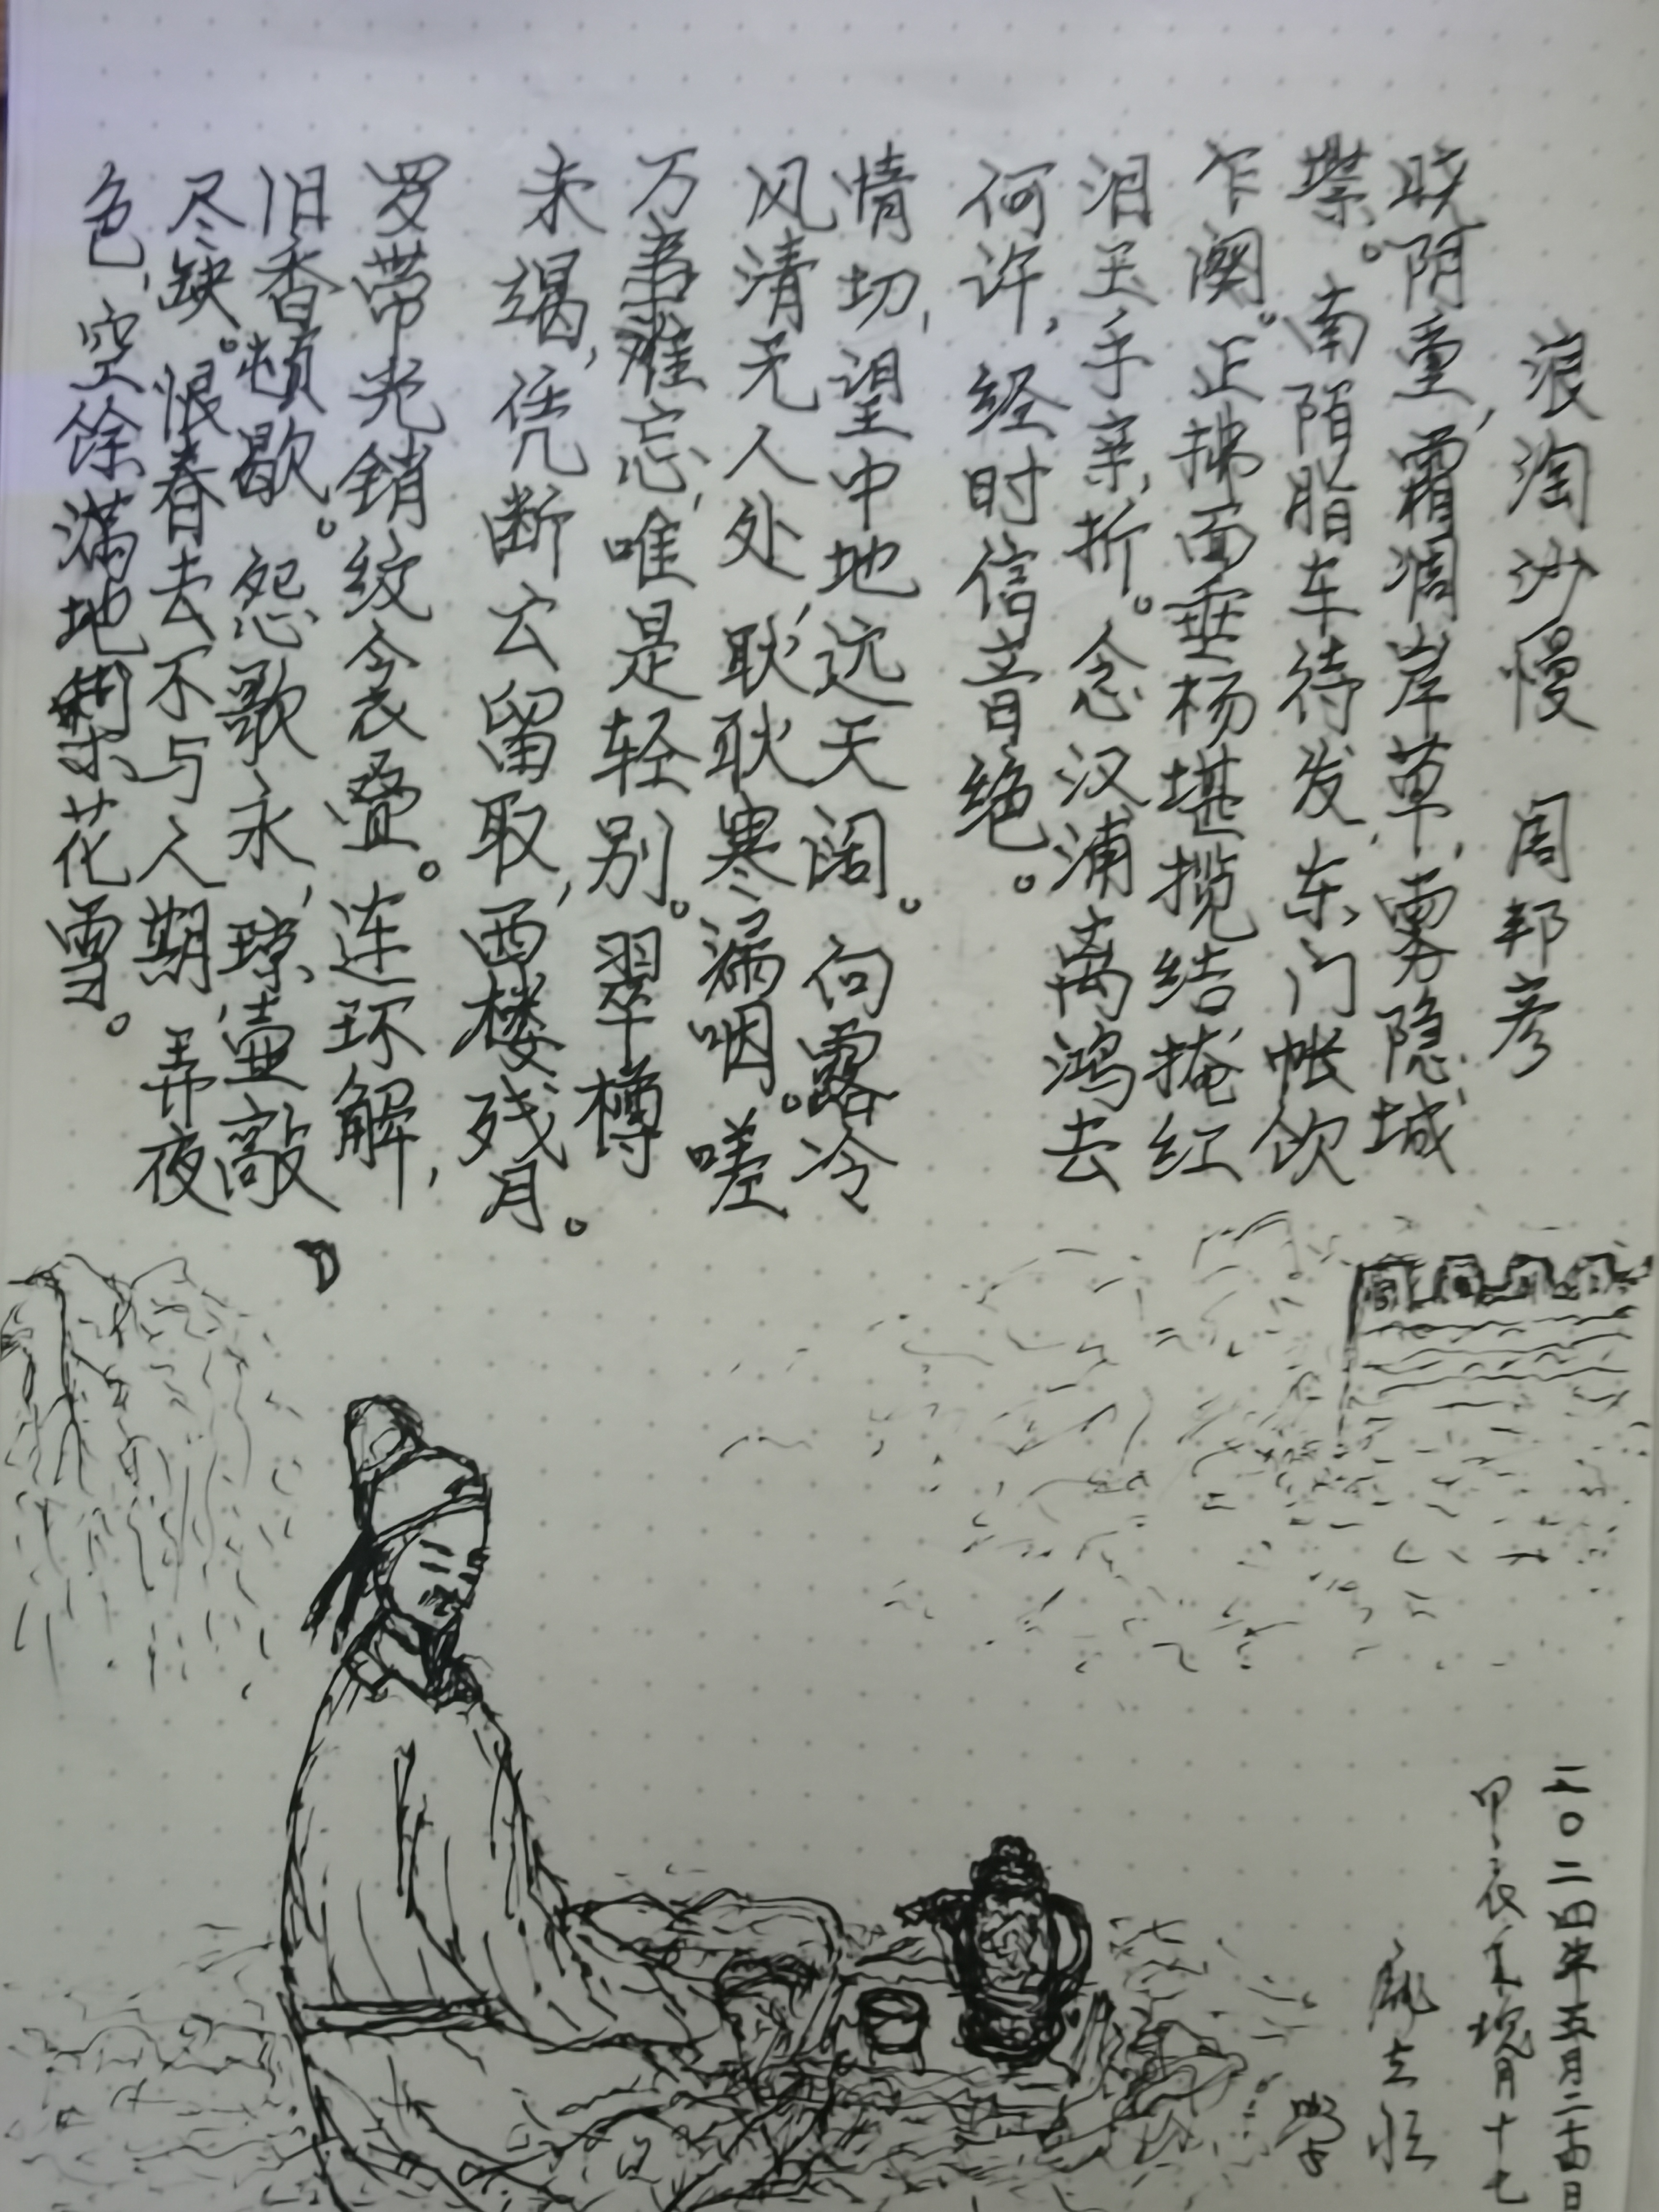 浪淘沙慢 周邦彦
晓阴重,霜凋岸草,雾隐城
堞。南陌脂车待发,东门帐饮
乍阕。正拂面垂杨堪揽结掩红
泪玉手亲折。念汉浦离鸿去
何许,经时信音绝。
情切,望中地远天阔。向露冷
风清无人处,耿耿寒漏咽。嗟
万事难忘,唯是轻别。翠樽
未竭,凭断云留取,西楼残月。
罗带光销纹衾叠。连环解,
旧香顿歇。怨歌永,琼壶敲
尽缺。恨春去不与人期,弄夜
色,空馀满地梨花雪。
二〇二四年五月二十四日
月十七